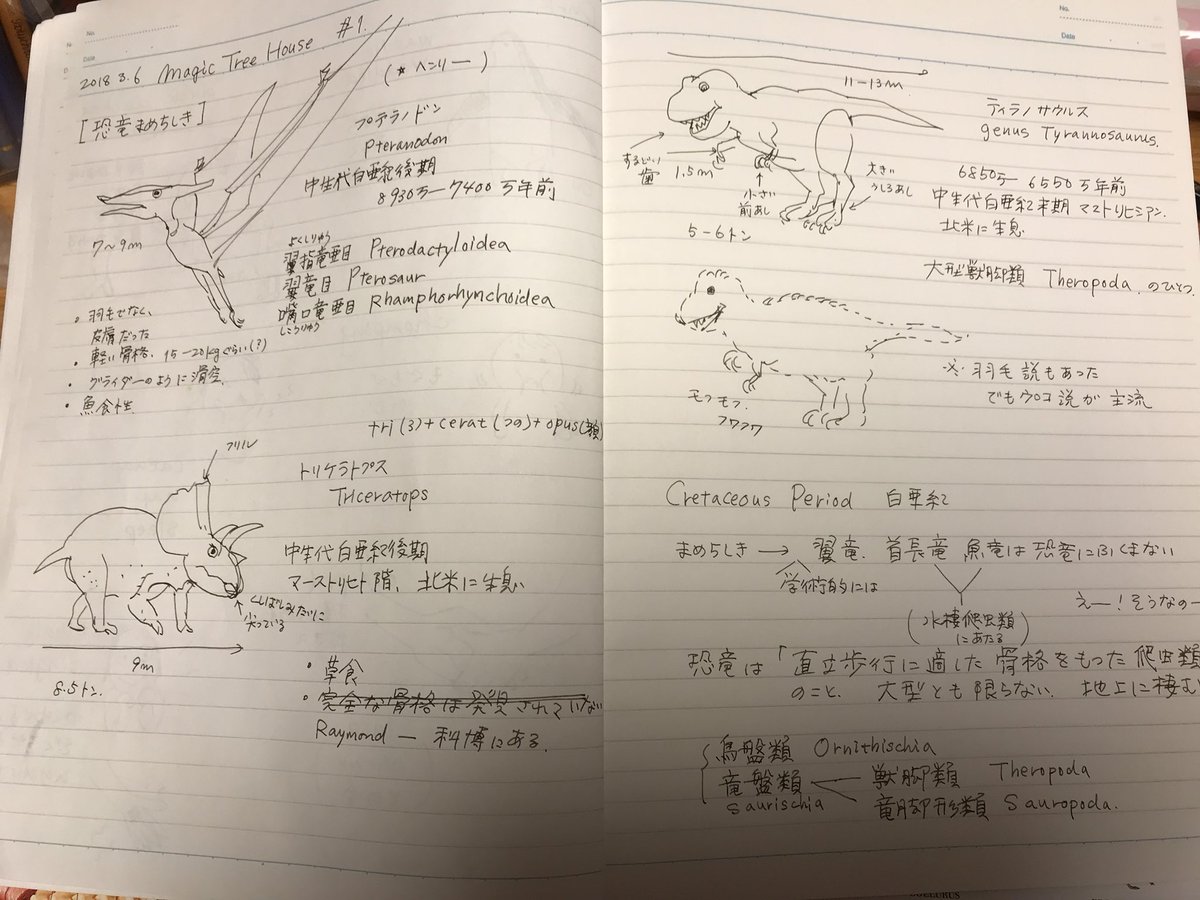 2018 3.6 Magic Tree House #1.
(★ ヘンリー)
[恐竜まめちしき]
プテラノドン
Pteranodon
中生代白亜紀後期
8930万—7400万年前
7〜9m
よくしりゅう
翼指竜亜目 Pterodactyloidea
翼竜目 Pterosaur
嘴口竜亜目 Rhamphorhynchoidea
しこうりゅう
・羽毛でなく、
皮膚だった
・軽い骨格、15—20kgぐらい(?)
・グライダーのように滑空.
・魚食性
tri(3)+cerat(つの)+opus(顔)
フリル
トリケラトプス
Triceratops
中生代白亜紀後期
マーストリヒト階、北米に生息
くちばしみたいに
尖っている
9m
8.5トン.
・草食
・完全な骨格は発見されていない
Raymond — 科博にある.
No.
Date
11—13m
ティラノサウルス
genus Tyrannosaurus.
するどい
歯
1.5m
小さい
前あし
大きい
うしろあし
5—6トン
6850万—6550万年前
中生代白亜紀末期 マストリヒシアン.
北米に生息
大型獣脚類 Theropoda のひとつ.
※ 羽毛説もあった
でもウロコ説が主流
モフモフ.
フワフワ
Cretaceous Period 白亜紀
まめちしき → 翼竜、首長竜 魚竜は恐竜にふくまない
学術的には
(水棲爬虫類
にあたる)
えー!そうなのー
恐竜は「直立歩行に適した骨格をもった爬虫類
のこと、大型とも限らない. 地上に棲む
鳥盤類 Ornithischia
竜盤類 獣脚類 Theropoda
Saurischia 竜脚形類 Sauropoda.